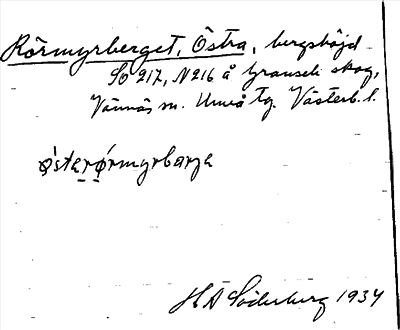 Rörmyrberget, Östra, bergshöjd
SO 217, N 216 å Granseli skog,
Vännäs sn. Umeå tg. Västerb. l.
østarǿrmyrbarja
H Å Söderberg 1934